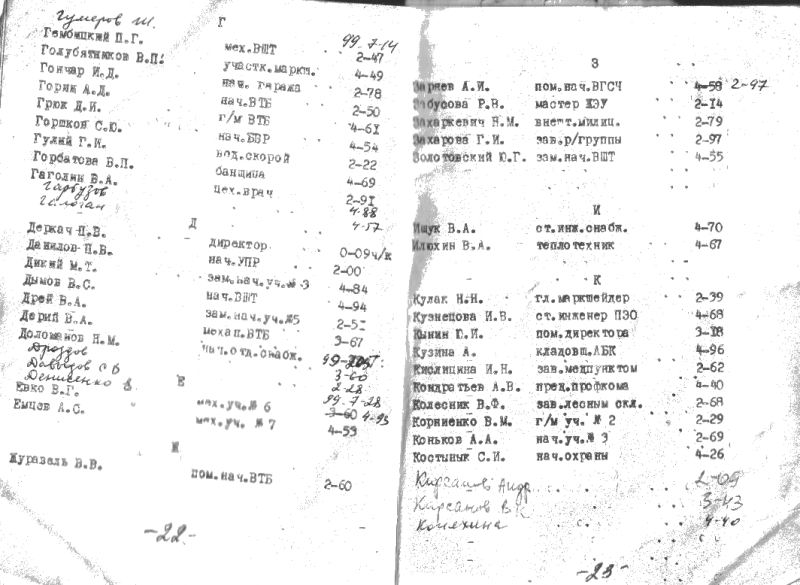 Гумеров Ш. 99-7-14
Г
Гембицкий П.Г. мех.ВШТ 2-47
Голубятников В.П. участк.маркш. 4-49
Гончар И.Д. нач. гаража 2-78
Горяк А.Д. нач.ВТБ 2-50
Грюк Д.И. г/м ВТБ 4-61
Горшков С.Ю. нач.БВР 4-54
Гулий Г.И. вод.скорой 2-22
Горбатова В.П. банщица 4-69
Гаголин В.А. цех.врач 2-91
Гарбузов 4-88
Галоган 4-57
Д
Деркач П.В. директор 0-09ч/к
Данилов П.Б. нач.УПР 2-00
Дикий М.Т. зам.нач.уч.№ 3 4-84
Дымов В.С. нач.ВШТ 4-94
Дрей В.А. зам.нач.уч.№5 2-51
Дерий В.А. механ.ВТБ 3-67
Доломанов Н.М. нач.отд.снабж. 99-
Дроздов 3-60
Давыдов С 2-28
Денисенко 99.7-28
Е
Евко В.Г. мех.уч.№ 6 3-60 4-93
Емцев А.С. мех.уч.№ 7 4-53
Ж
Журавель В.В. пом.нач.ВТБ 2-60
-22-
З
Заряев А.И. пом.нач.ВГСЧ 4-58 2-97
Забусова Р.В. мастер ЖЭУ 2-14
Захаркевич Н.М. внешт.милиц. 2-79
Захарова Г.И. зав.р/группы 2-97
Золотовский Ю.Г. зам.нач.ВШТ 4-55
И
Ищук В.А. ст.инж.снабж. 4-70
Илюхин В.А. теплотехник 4-67
К
Кулак Н.Н. гл.маркшейдер 2-39
Кузнецова И.В. ст.инженер ПЭО 4-68
Кынин Ю.И. пом.директора 3-18
Кузина А. кладовщ.АБК 4-96
Кислицина И.Н. зав.медпунктом 2-62
Кондратьев А.В. пред.профкома 4-40
Колесник В.Ф. зав.лесным скл. 2-68
Корниенко В.М. г/м уч. № 2 2-29
Коньков А.А. нач.уч.№ 3 2-69
Костынык С.И. нач.охраны 4-26
Кирсанов Андр. 2-09
Кирсанов В 3-43
Конехина 4-40
-23-